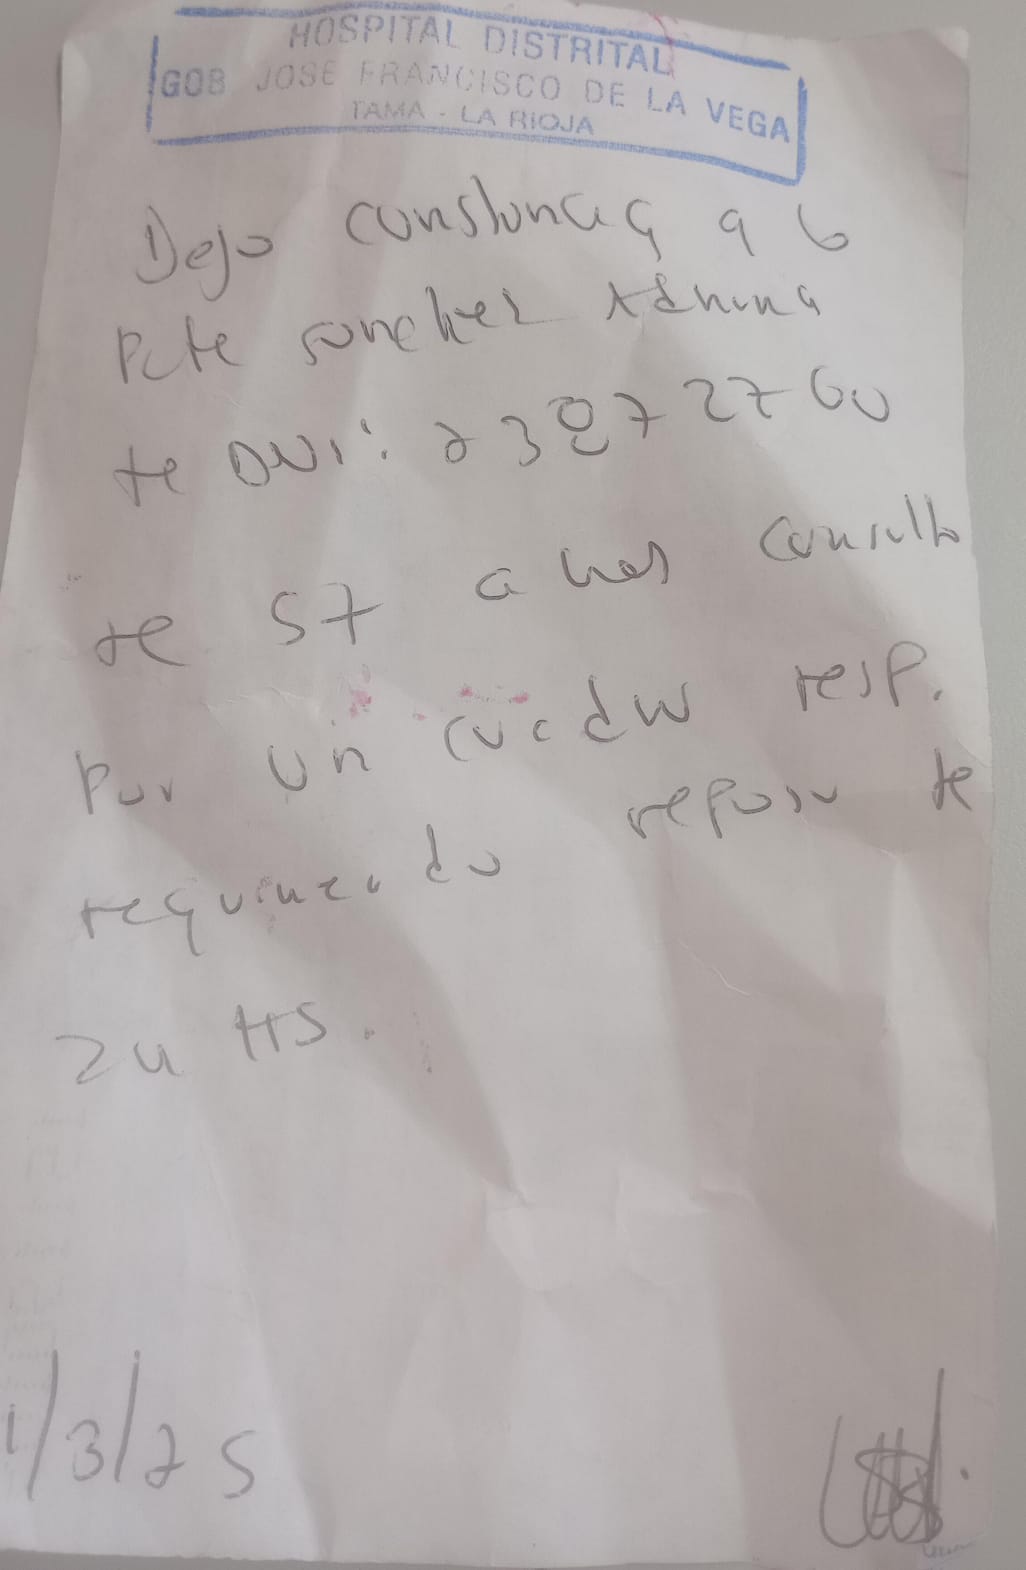 HOSPITAL DISTRITAL
GOB JOSE FRANCISCO DE LA VEGA
TAMA - LA RIOJA
Dejo constancia q la
Pcte sanchez Adriana
de DNI: 23872760
de 57 años consulto
por un cuadro resp.
requiriendo reposo de
24 HS.
1/3/25